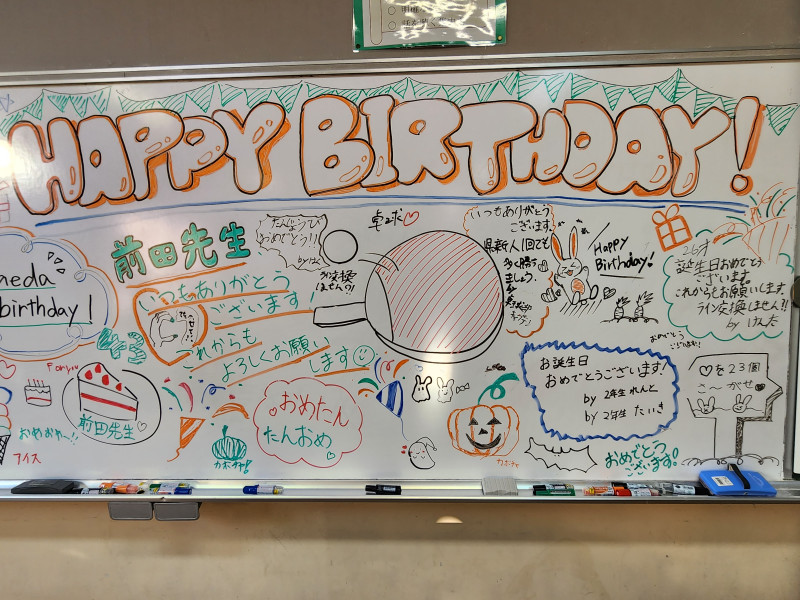 HAPPY BIRTHDAY!
前田先生
いつもありがとう
ございます!
これからも
よろしくお願い
します
たんじょうび
おめでとう!!
卓球♡
いつもありがとう
ございます。
県新人1回でも
多く勝ち
ましょう。
Happy
Birthday!
26才
誕生日おめでとう
ございます。
これからもお願いします
ライン交換しません?!
by けんた
eda
birthday!
前田先生
おめおめ〜!!
アイス
カボチャ!
おめたん
たんおめ♡
カボチャ
お誕生日
おめでとうございます!
by 2年生 れんと
by 2年生 たいき
おめでとう
ございます!
おめでとう
♡を23個
さがせ